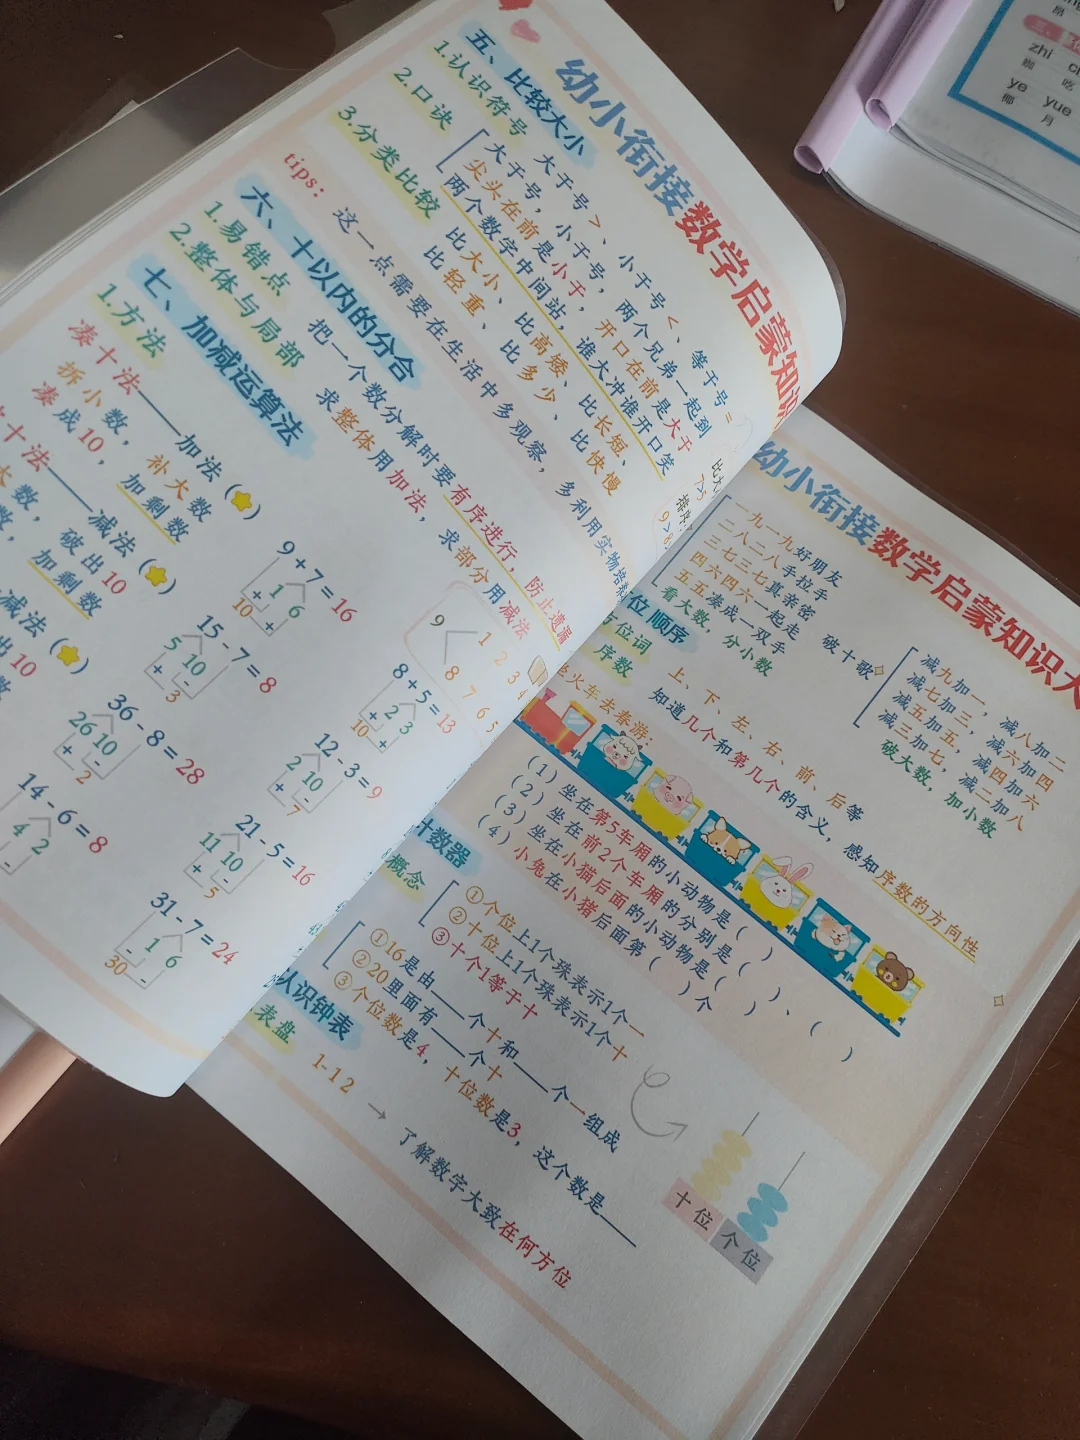 幼小衔接数学启蒙知识
五、比较大小
1.认识符号 大于号>、小于号<、等于号=
2.口诀
大于号,小于号,两个兄弟一起到
尖头在前是小于,开口在前是大于
两个数字中间站,谁大冲谁开口笑
3.分类比较 比大小、比高矮、比长短、
比轻重、比多少、比快慢
tips: 这一点需要在生活中多观察,多利用实物培养
六、十以内的分合
1.易错点 把一个数分解时要有序进行,防止遗漏
2.整体与局部 求整体用加法,求部分用减法
七、加减运算法
1.方法
凑十法——加法(
拆小数,补大数
凑成10,加剩数
十法——减法(
数,破出10
数,加剩数
减法(
出10
数
9+7=16
1 6
10
15-7=8
5 10
3
36-8=28
26 10
2
14-6=8
4 2
9
1 8
2 7
3 6
4 5
8+5=13
2 3
10
12-3=9
2 10
7
21-5=16
11 10
5
31-7=24
1 6
30
比大
7>5
排序
9>8
幼小衔接数学启蒙知识大
一九一九好朋友
二八二八手拉手
三七三七真亲密
四六四六一起走
五五凑成一双手
看大数,分小数
破十歌
减九加一,减八加二
减七加三,减六加四
减五加五,减四加六
减三加七,减二加八
破大数,加小数
位顺序
方位词 上、下、左、右、前、后等
序数 知道几个和第几个的含义,感知序数的方向性
坐火车去春游:
(1)坐在第5车厢的小动物是( )
(2)坐在前2个车厢的分别是( )、( )
(3)坐在小猫后面的小动物是( )
(4)小兔在小猪后面第( )个
计数器
概念
①个位上1个珠表示1个一
②十位上1个珠表示1个十
③十个1等于十
①16是由____个十和____个一组成
②20里面有____个十
③个位数是4,十位数是3,这个数是____
十位
个位
认识钟表
表盘 1-12 → 了解数字大致在何方位
zhi
吃
ye yue
椰 月